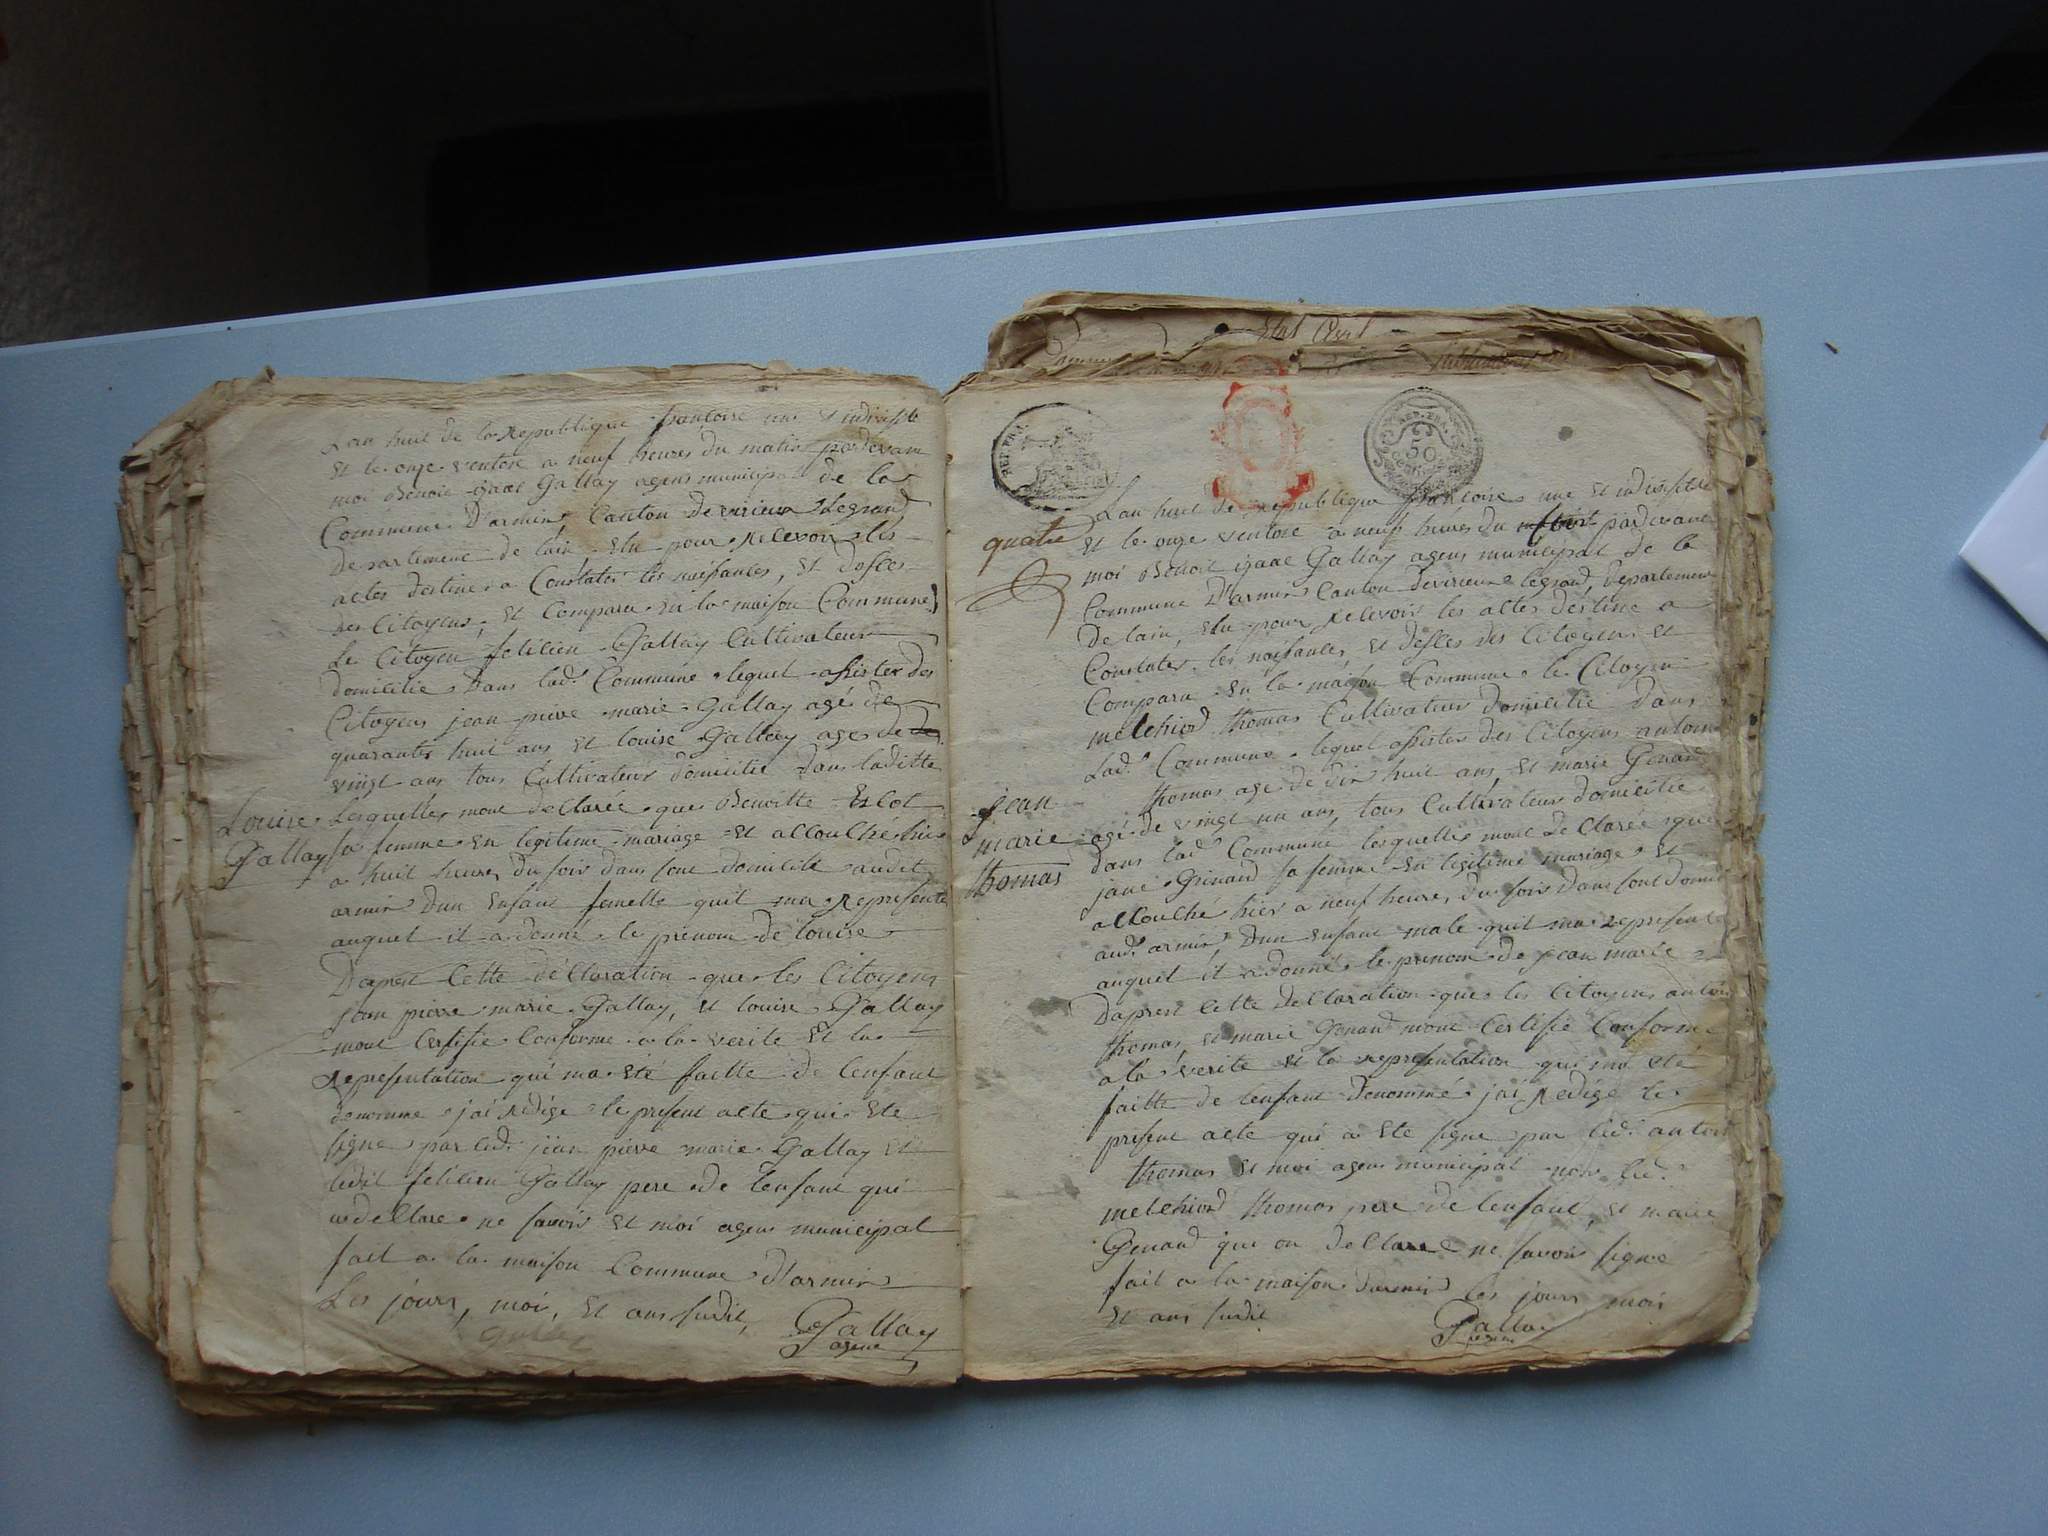 Lan huit de la Republique françoise une et indivisible
et le onze ventose a neuf heures du matin pardevant
moi Benoit izaac Gallay agent municipal de la
Commune D'armix, Canton de virieux Legrand
Departement de lain Elu pour Relevoir les
actes destines a Constater les naissances, et deses
Des Citoyens, et Comparu en la maison Commune
Le Citoyen felicien Gallay Cultivateur
domicilie Dans lad. Commune lequel assister des
Citoyens jean pierre marie Gallay agé de
quarante huit ans et louise Gallay age de
vingt ans tous Cultivateur domicilie Dans laditte
Lesquelles mont declarée que Benoitte
Louise
Gallay
sa femme en legitime mariage et accouché hier
a huit heures du soir dans sont domicile audit
armix dun Enfant femelle quil ma Represente
auquel il a donné le prenom de louise
Dapres Cette declaration que les Citoyens
jean pierre marie Gallay, et louise Gallay
mont Certifie Conforme a la verite et la
Representation qui ma eté faitte de lenfant
denomme jai Redige le present acte qui ete
signe par led. jean pierre marie Gallay et
ledit felicien Gallay pere de lenfant qui
a declare ne savoir et moi agent municipal
fait a la maison Commune D'armix
Les jours, moi, et ans sudit,
Gallay
agent
Etat Civil
REP. FRA.
50
quatre
Lan huit de Republique françoise une et indivisible
et le onze ventose a neuf heures du pardevant
moi Benoit izaac Gallay agent municipal de la
Commune D'armix Canton de virieux legrand, Departement
De lain, Elu pour Relevoir les actes destine a
Constater les naissances et deses des Citoyens et
Comparu en la maison Commune le Citoyen
melchior thomas Cultivateur domicilie dans
Lad. Commune lequel assister des Citoyens antoine
thomas age de dix huit ans, et marie Genand
agé de vingt un ans, tous Cultivateur domicilie
jean
marie
thomas
dans lad. Commune lesquelles mont declarée que
jane Genand sa femme en legitime mariage et
accouché hier a neuf heures, du soir dans sont domicile
aud. armix, dun enfant male quil ma represente
auquel il a donné le prenom de jean marie
Dapres Cette declaration que les Citoyens antoine
thomas et marie Genand mont Certifie Conforme
a la verite et la representation qui ma eté
faitte de lenfant denommé jai Redige le
present acte qui a ete signe par led. antoine
thomas et moi agent municipal non led.
melchior thomas pere de lenfant, et marie
Genand qui on declare ne savoir signe
fait a la maison darmix les jours mois
et ans sudit
Gallay
agent